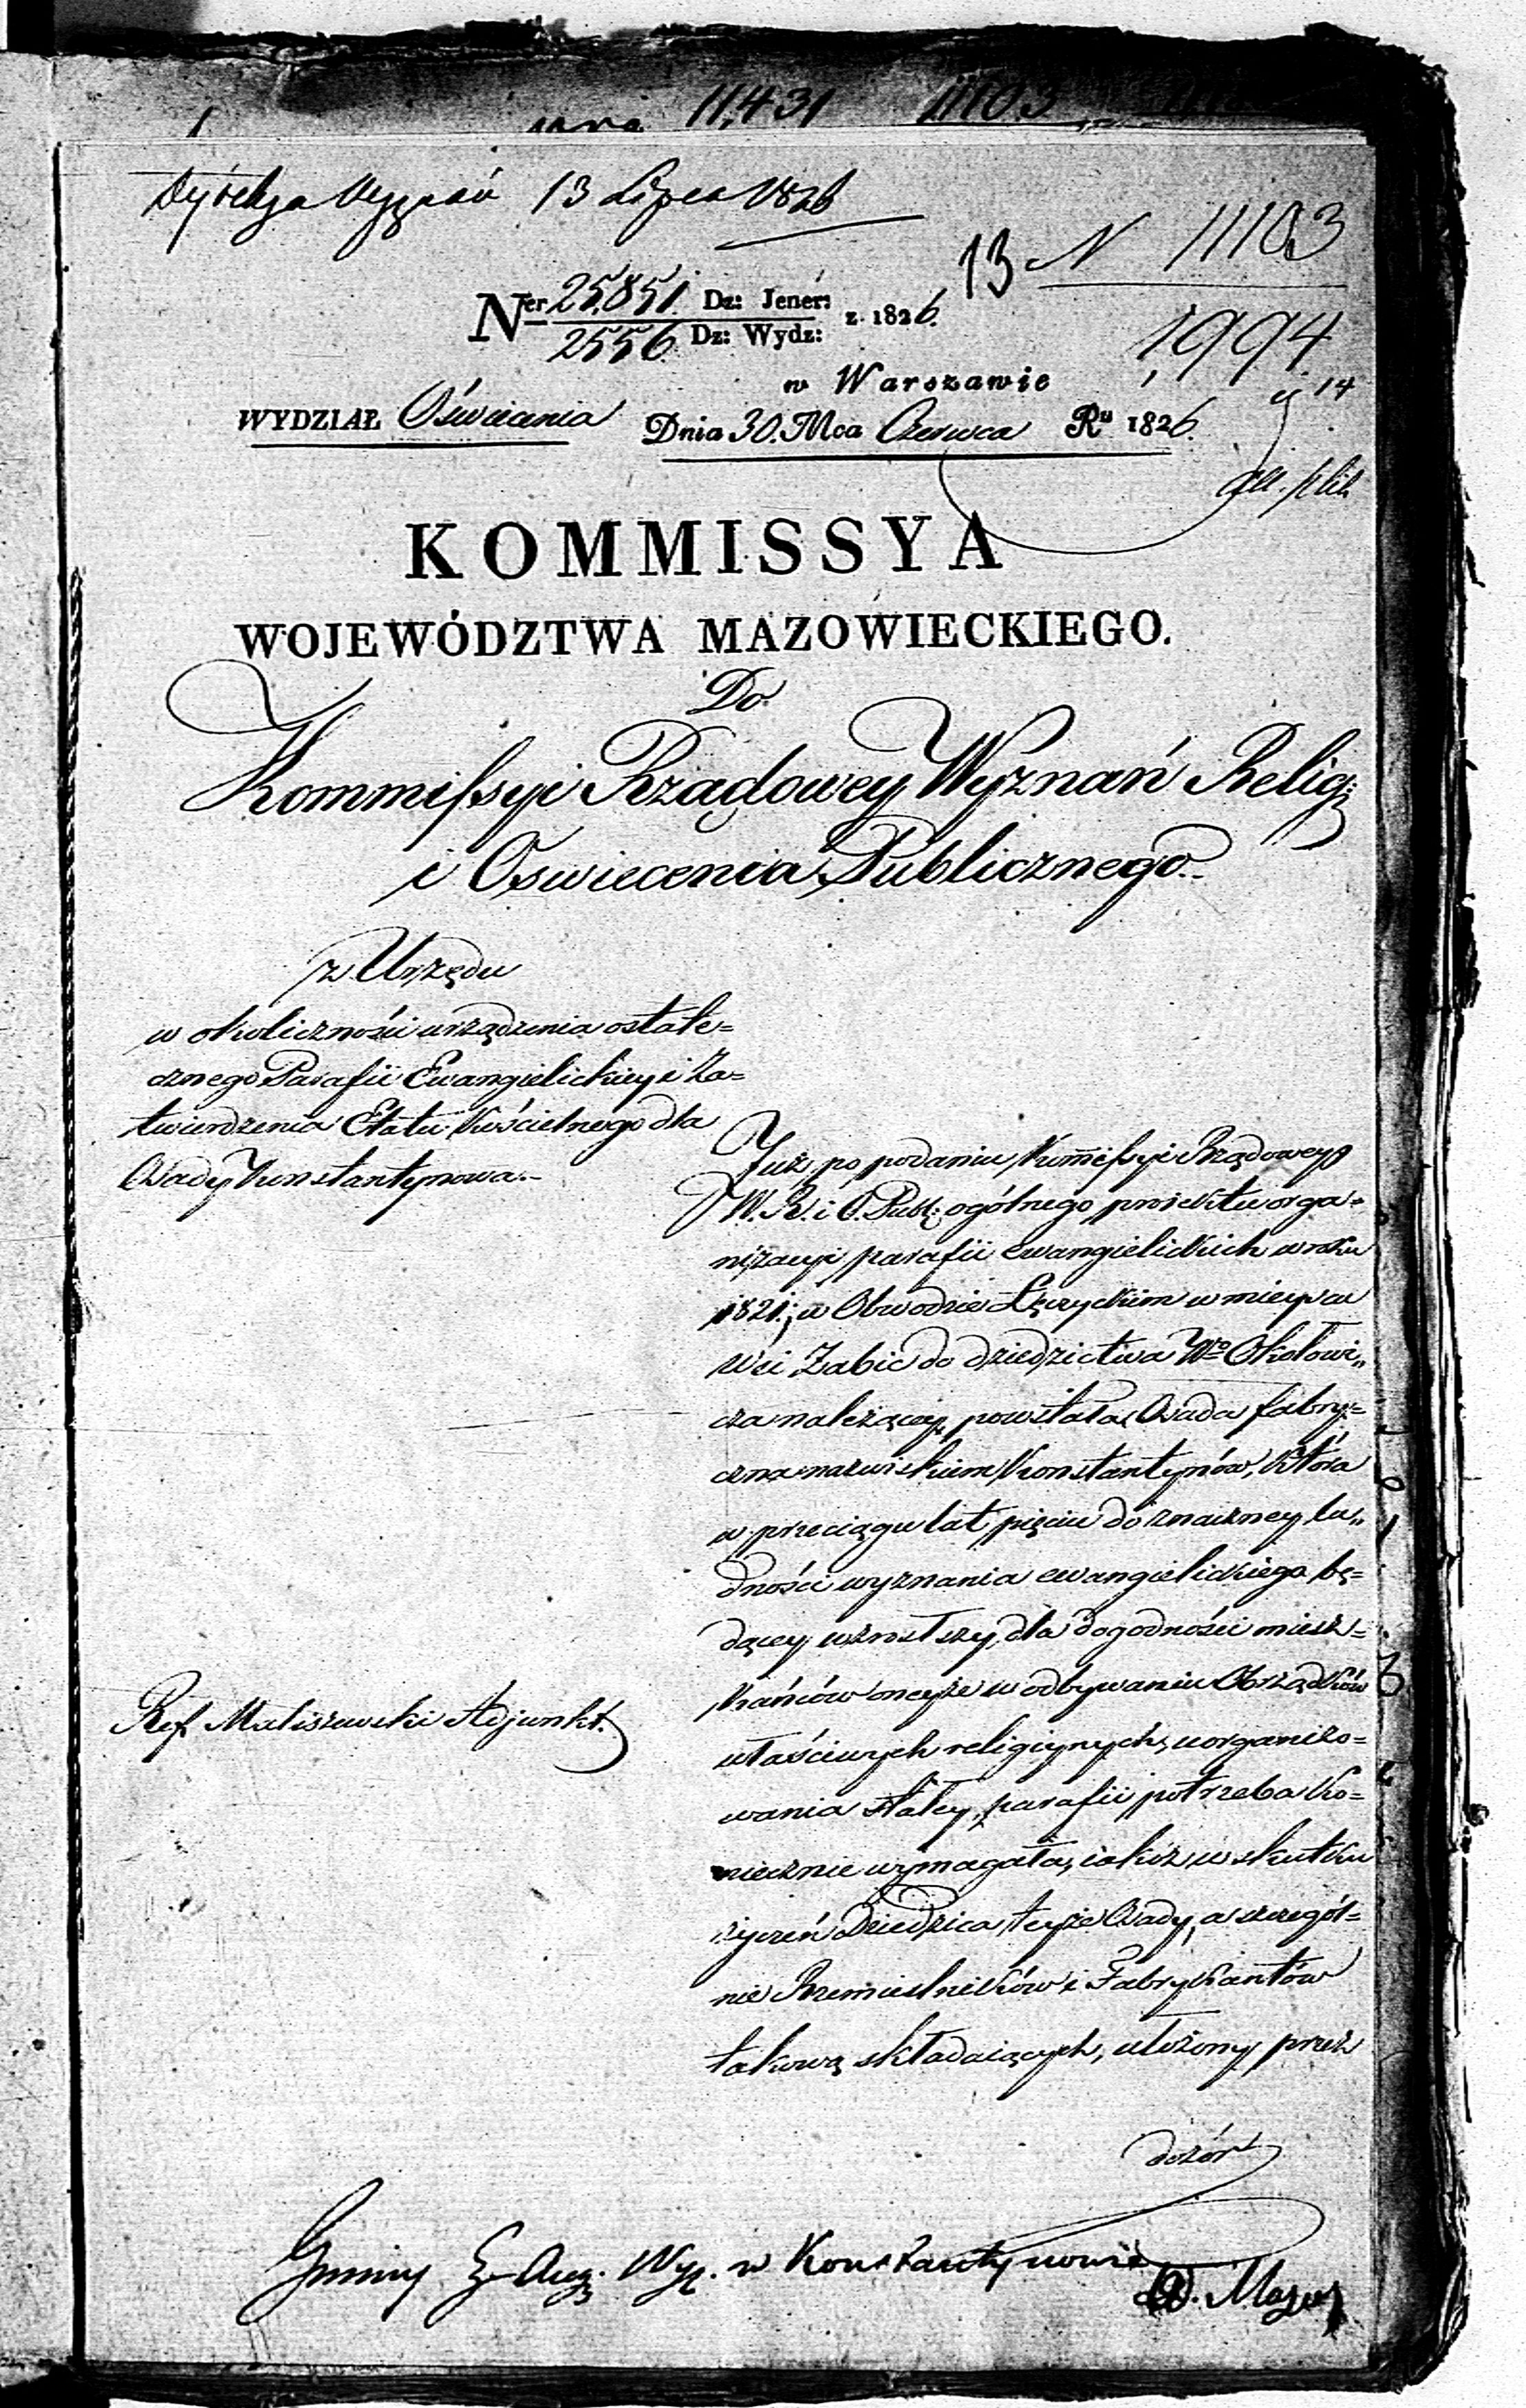 11,431 11103
Dyrekcja Wyznań 13 Lipca 1826
13 N 11103
Ner 25,851. Dz: Jener: z. 1826.
2556 Dz: Wydz:
1994
w Warszawie
14
WYDZIAŁ Oświecenia Dnia 30. Mca Czerwca Ru 1826.
KOMMISSYA
WOJEWÓDZTWA MAZOWIECKIEGO.
Do
Kommissyi Rządowey Wyznań Relig:
i Oswiecenia Publicznego.
z Urzędu
w okoliczności urządzenia ostate=
cznego Parafii Ewangielickiey i Za=
twierdzenia Etatu Kościelnego dla
Osady Konstantynowa.
Już po podaniu Kommissyi Rządowey
W. R. i O. Publ: ogólnego projektu orga=
nizacyi parafii ewangielickich w roku
1821; w Obwodzie Łęczyckim w mieyscu
Wsi Żabic do dziedzictwa Wo Okołowi„
cza należącey, powstała Osada fabry=
czna nazwiskiem Konstantynów, która
w przeciągu lat pięciu do znaczney lu„
dności wyznania ewangielickiego bę=
dącey wzrostszy, dla dogodności miesz=
kańców oneyże w odbywaniu Obrządków
właściwych religiynych, uorganizo=
wania stałey parafii potrzeba ko=
niecznie wymagała, iakoż w skutku
życzeń Dziedzica teyże Osady, a szczegól=
nie Rzemieslników i Fabrykantów
takową składaiących, ułożony przez
dozór
Ref. Maliszewski Adjunkt.
Gminy E-Aug. Wyz. w Konstantynowie